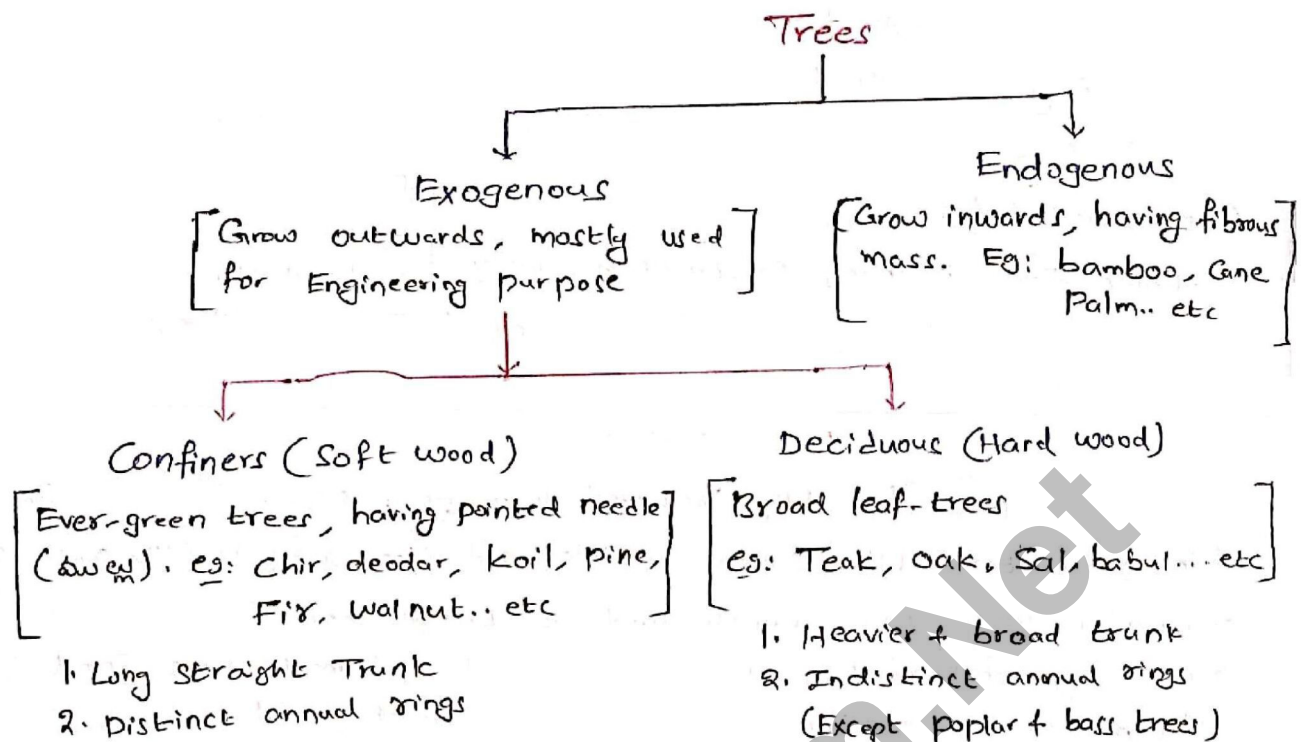 Trees
Exogenous
Grow outwards, mostly used
for Engineering purpose
Endogenous
Grow inwards, having fibrous
mass. Eg: bamboo, Cane
Palm.. etc
Confiners (Soft wood)
Ever-green trees, having pointed needle
eg: Chir, deodar, Koil, pine,
Fir, walnut.. etc
1. Long straight Trunk
2. Distinct annual rings
Deciduous (Hard wood)
Broad leaf-trees
eg: Teak, oak, Sal, babul... etc
1. Heavier & broad trunk
2. Indistinct annual rings
(Except poplar & bass trees)
.Net